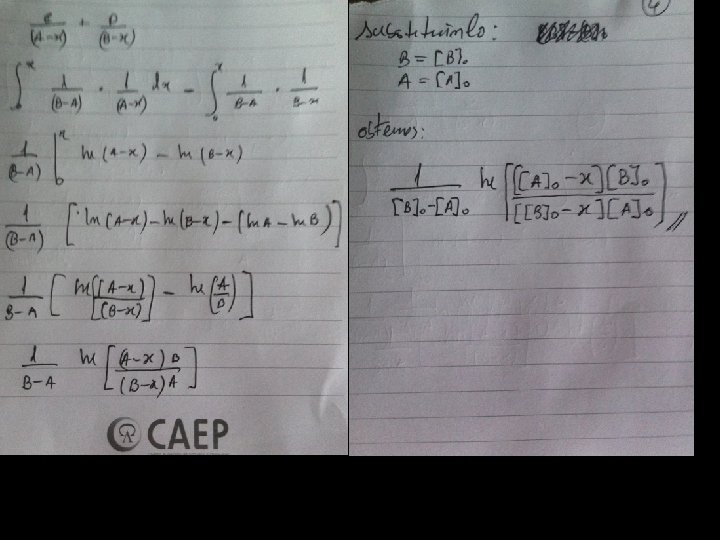 C/(A-x) + D/(B-x)
∫₀ˣ 1/(B-A) · 1/(A-x) dx - ∫₀ˣ 1/(B-A) · 1/(B-x)
1/(B-A) |₀ˣ ln(A-x) - ln(B-x)
1/(B-A) [ln(A-x) - ln(B-x) - (lnA - lnB)]
1/(B-A) [ln[(A-x)/(B-x)] - ln(A/B)]
1/(B-A) ln[(A-x)B/(B-x)A]
CAEP
4
substituindo:
B = [B]₀
A = [A]₀
obtemos:
1/([B]₀-[A]₀) ln[[[A]₀-x][B]₀/[[B]₀-x][A]₀]//